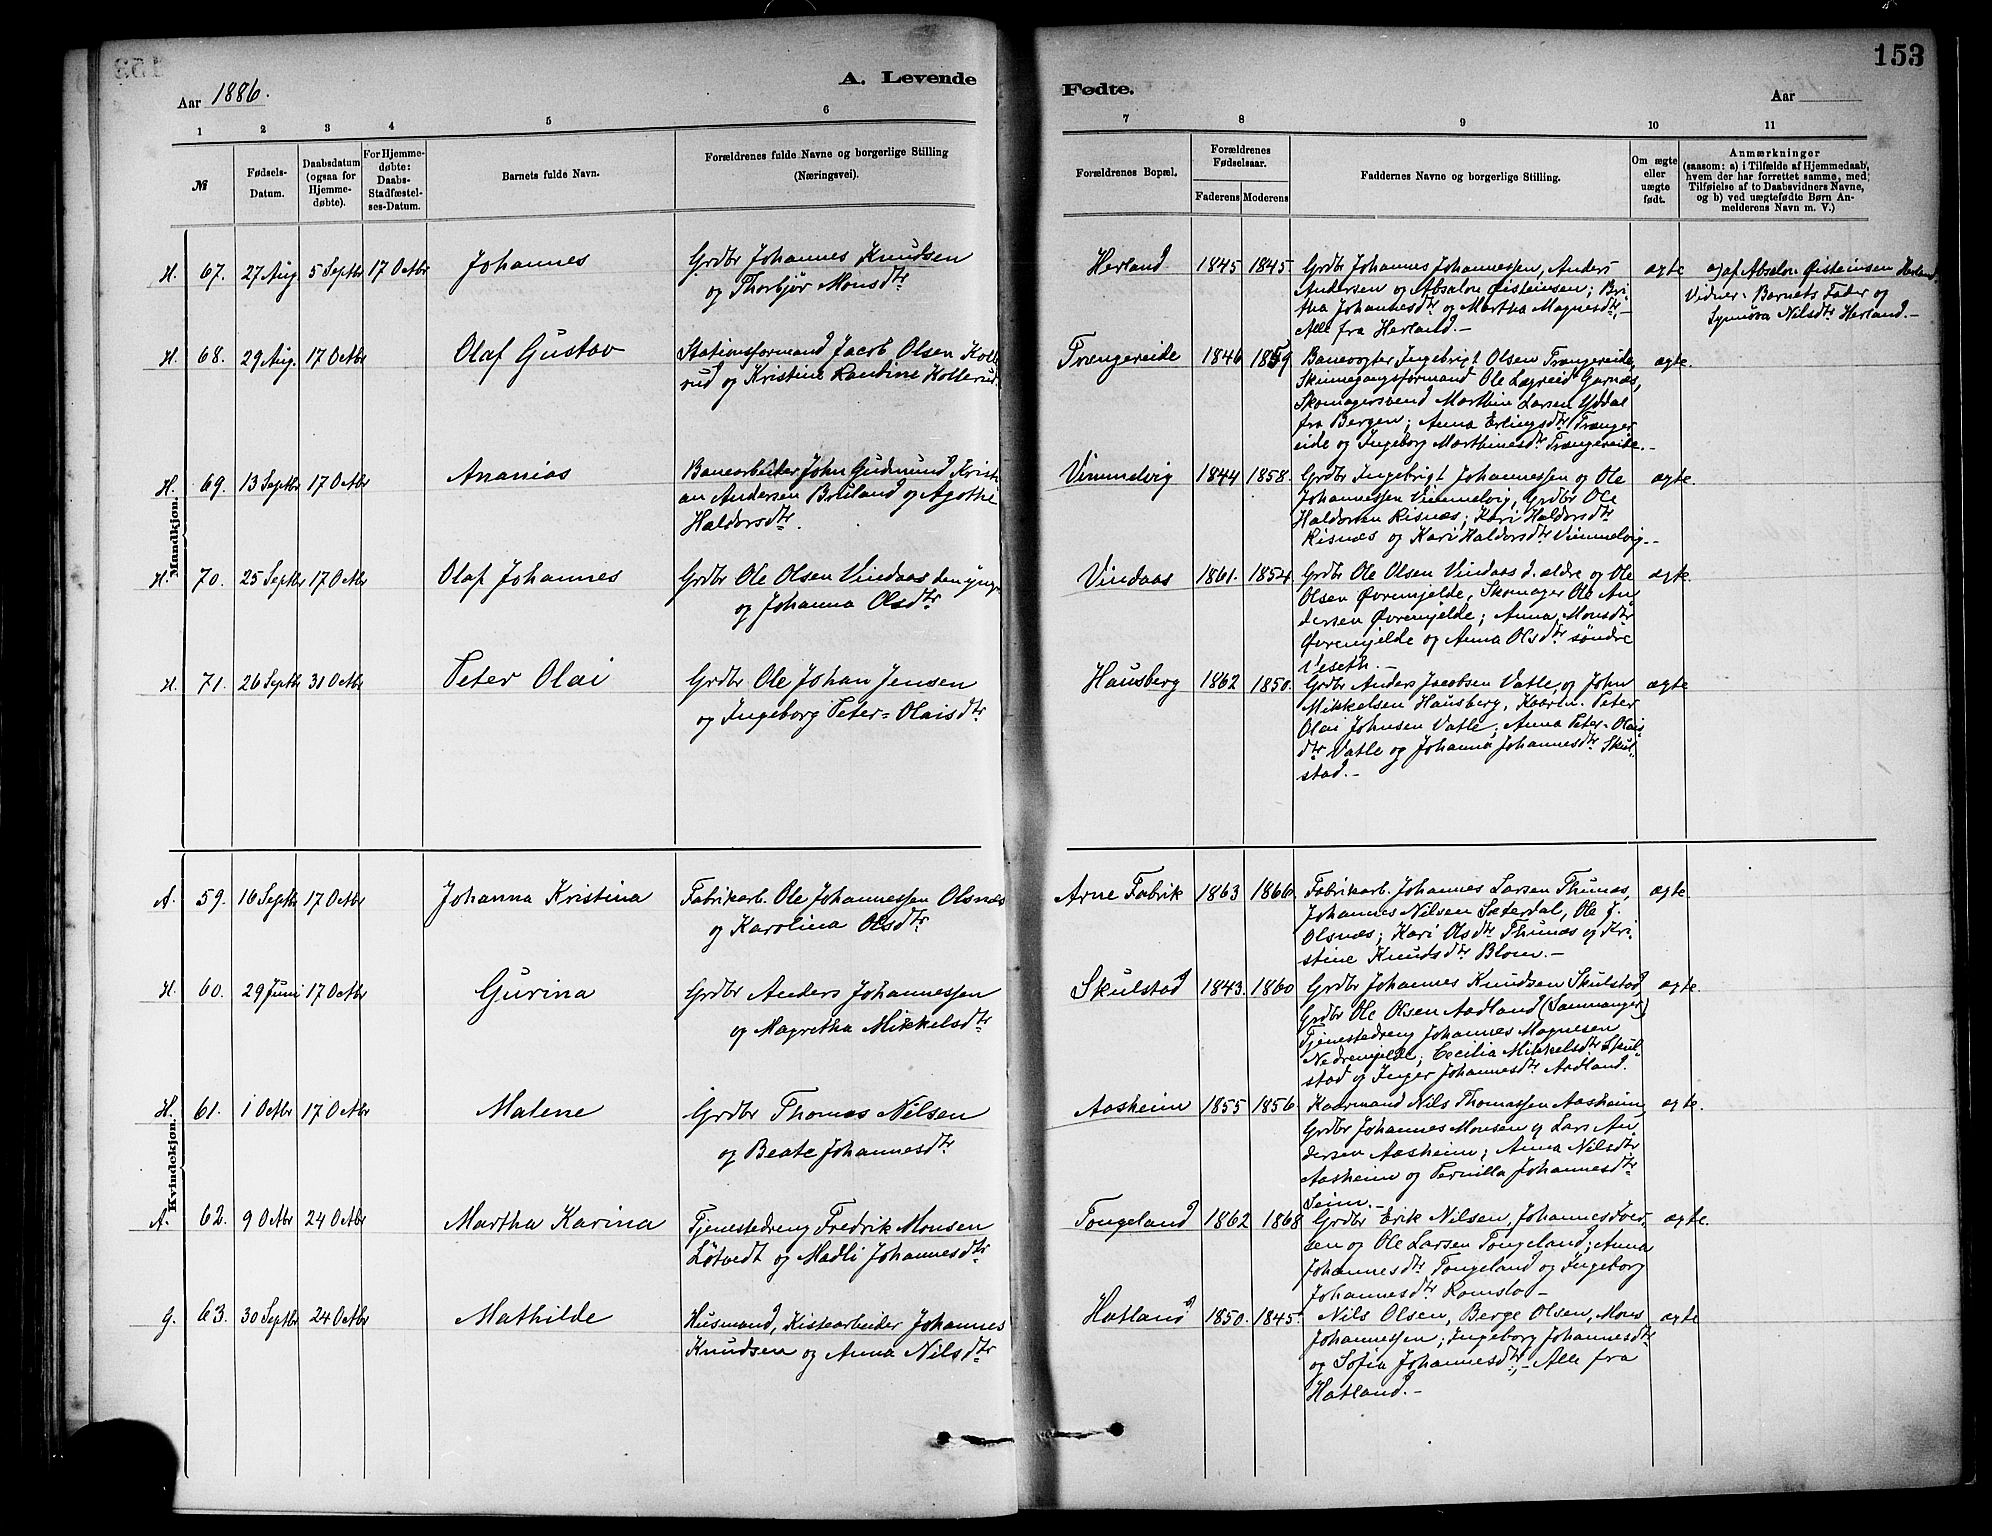 153
A. Levende
Fødte.
Aar 1886.
Aar
1 2 3 4 5 6 7 8 9 10 11
№
Fødsels-
Datum.
Daabsdatum
(ogsaa for
Hjemme-
døbte).
For Hjemme-
døbte:
Daabs-
Stadfæstel-
ses-Datum.
Barnets fulde Navn.
Forældrenes fulde Navne og borgerlige Stilling
(Næringsvei).
Forældrenes Bopæl.
Forældrenes
Fødselsaar.
Faderens Moderens
Faddernes Navne og borgerlige Stilling.
Om ægte
eller
uægte
født.
Anmærkninger
(saasom: a) i Tilfælde af Hjemmedaab,
hvem der har forrettet samme, med
Tilføielse af to Daabsvidners Navne,
og b) ved uægtefødte Børn An-
melderens Navn m. V.)
Mandkjøn.
H. 67. 27 Aug. 5 Septbr 17 Octbr Johannes
Grdbr Johannes Knudsen
og Thorbjør Monsdtr
Herland 1845 1845
Grdbr Johannes Johannessen, Anders
Andersen og Absalon Øisteinsen; Bri-
tha Johannesdtr og Martha Magnesdtr,-
Alle fra Herland.-
ægte
a) af Absalon Øisteinsen Herland.
Vidner: Barnets Fader og
Synnøva Nilsdtr Herland.-
H. 68. 29 Aug. 17 Octbr Olaf Gustav
Stationsformand Jacob Olsen Kolle-
rud og Kristine Randine Kollerud.
Trengereide 1846 1859
Banevogter Ingebrigt Olsen Trængereide,
Skinnegangsformand Ole Lægreid Garnæs,
Skomagersvend Marthin Larsen Yddal
fra Bergen; Anna Erlingsdtr Trænger
eide og Ingeborg Marthinesdtr Trængereide.-
ægte.
H. 69. 13 Septbr 17 Octbr Ananias
Banearbeider John Gudmund Kristi-
an Andersen Bruland og Agothe
Haldorsdtr.
Vimmelvig 1844 1858.
Grdbr Ingebrigt Johannessen og Ole
Johannessen Vimmelvig, Grdbr Ole
Haldorsen Risnæs; Kari Haldorsdtr
Risnæs og Kari Haldorsdtr Vimmelvig.-
ægte
H. 70. 25 Septbr 17 Octbr Olaf Johannes
Grdbr Ole Olsen Vindaas den yngre
og Johanna Olsdtr
Vindaas 1861. 1854.
Grdbr Ole Olsen Vindaas d. ældre og Ole
Olsen Øvremjelde, Skomager Ole An
dersen Øvremjelde; Anna Monsdtr
Øvremjelde og Anna Olsdtr søndre
Veseth.-
ægte.
H. 71. 26 Septbr 31 Octbr Peter Olai
Grdbr Ole Johan Jensen
og Ingeborg Peter-Olaisdtr
Hausberg 1862 1850.
Grdbr Anders Jacobsen Vatle, og John
Mikkelsen Hausberg, Kaarm. Peter
Olai Johnsen Vatle; Anna Peter-Olais
dtr Vatle og Johanna Johannesdtr Skul-
stad.-
ægte
Kvindekjøn.
A. 59. 16 Septbr 17 Octbr Johanna Kristina
Fabrikarb. Ole Johannessen Olsnæs
og Karolina Olsdtr
Arne Fabrik 1863 1866.
Fabrikarb. Johannes Larsen Thunæs,
Johannes Nilsen Sæterdal, Ole J.
Olsnæs; Kari Olsdtr Thunæs og Kri-
stine Knudsdtr Blom.-
ægte
H. 60. 29 Juni 17 Octbr Gurina
Grdbr Anders Johannessen
og Magretha Mikkelsdtr
Skulstad 1843. 1860
Grdbr Johannes Knudsen Skulstad
Grdbr Ole Olsen Aadland (Samnanger)
Tjenestedreng Johannes Magnesen
Nedremjelde; Cecilia Mikkelsdtr Skul-
stad og Inger Johannesdtr Aadland.
ægte.
H. 61. 1 Octbr 17 Octbr Malene
Grdbr Thomas Nilsen
og Beate Johannesdtr
Aasheim 1855 1856
Kaarmand Nils Thomassen Aasheim,
Grdbr Johannes Monsen og Lars An
dersen Aasheim; Anna Nilsdtr
Aasheim og Pernilla Johannesdtr
Seim.-
ægte.
A. 62. 9 Octbr 24 Octbr Martha Karina
Tjenestedreng Fredrik Monsen
Løtvedt og Madli Johannesdtr
Tongeland 1862 1868
Grdbr Erik Nilsen, Johannes Iver-
sen og Ole Larsen Tongeland; Anna
Johannesdtr Tongeland og Ingeborg
Johannesdtr Romslo-
ægte.
G. 63. 30 Septbr 24 Octbr Mathilde
Husmand, Kistearbeider Johannes
Knudsen og Anna Nilsdtr
Hatland 1850. 1845.
Nils Olsen, Berge Olsen, Mons
Johannessen; Ingeborg Johannesdtr
og Sofia Johannesdtr,- Alle fra
Hatland.-
ægte